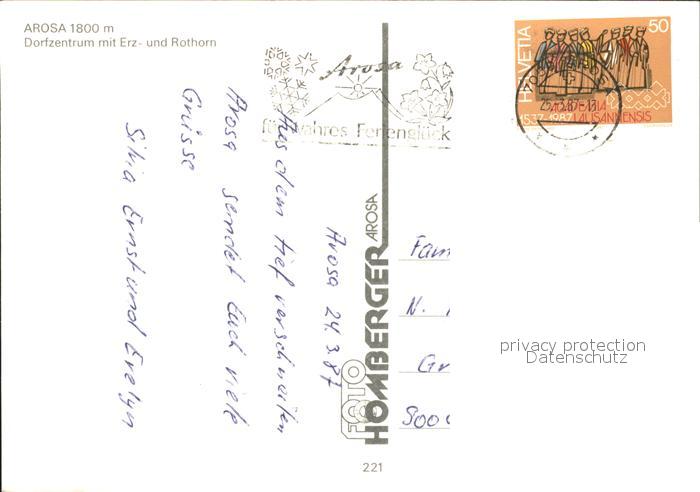 AROSA 1800 m
Dorfzentrum mit Erz- und Rothorn
Arosa
für wahres Ferienglück
HELVETIA
50
ACADEMIA
1537-1987 LAUSANNENSIS
Arosa 24.3.87
Aus dem tief verschneiten
Arosa sendet Euch viele
Grüsse
Silvia Ernst und Evelyn
FOTO
HOMBERGER AROSA
Fam
N.
Gr
privacy protection
Datenschutz
221